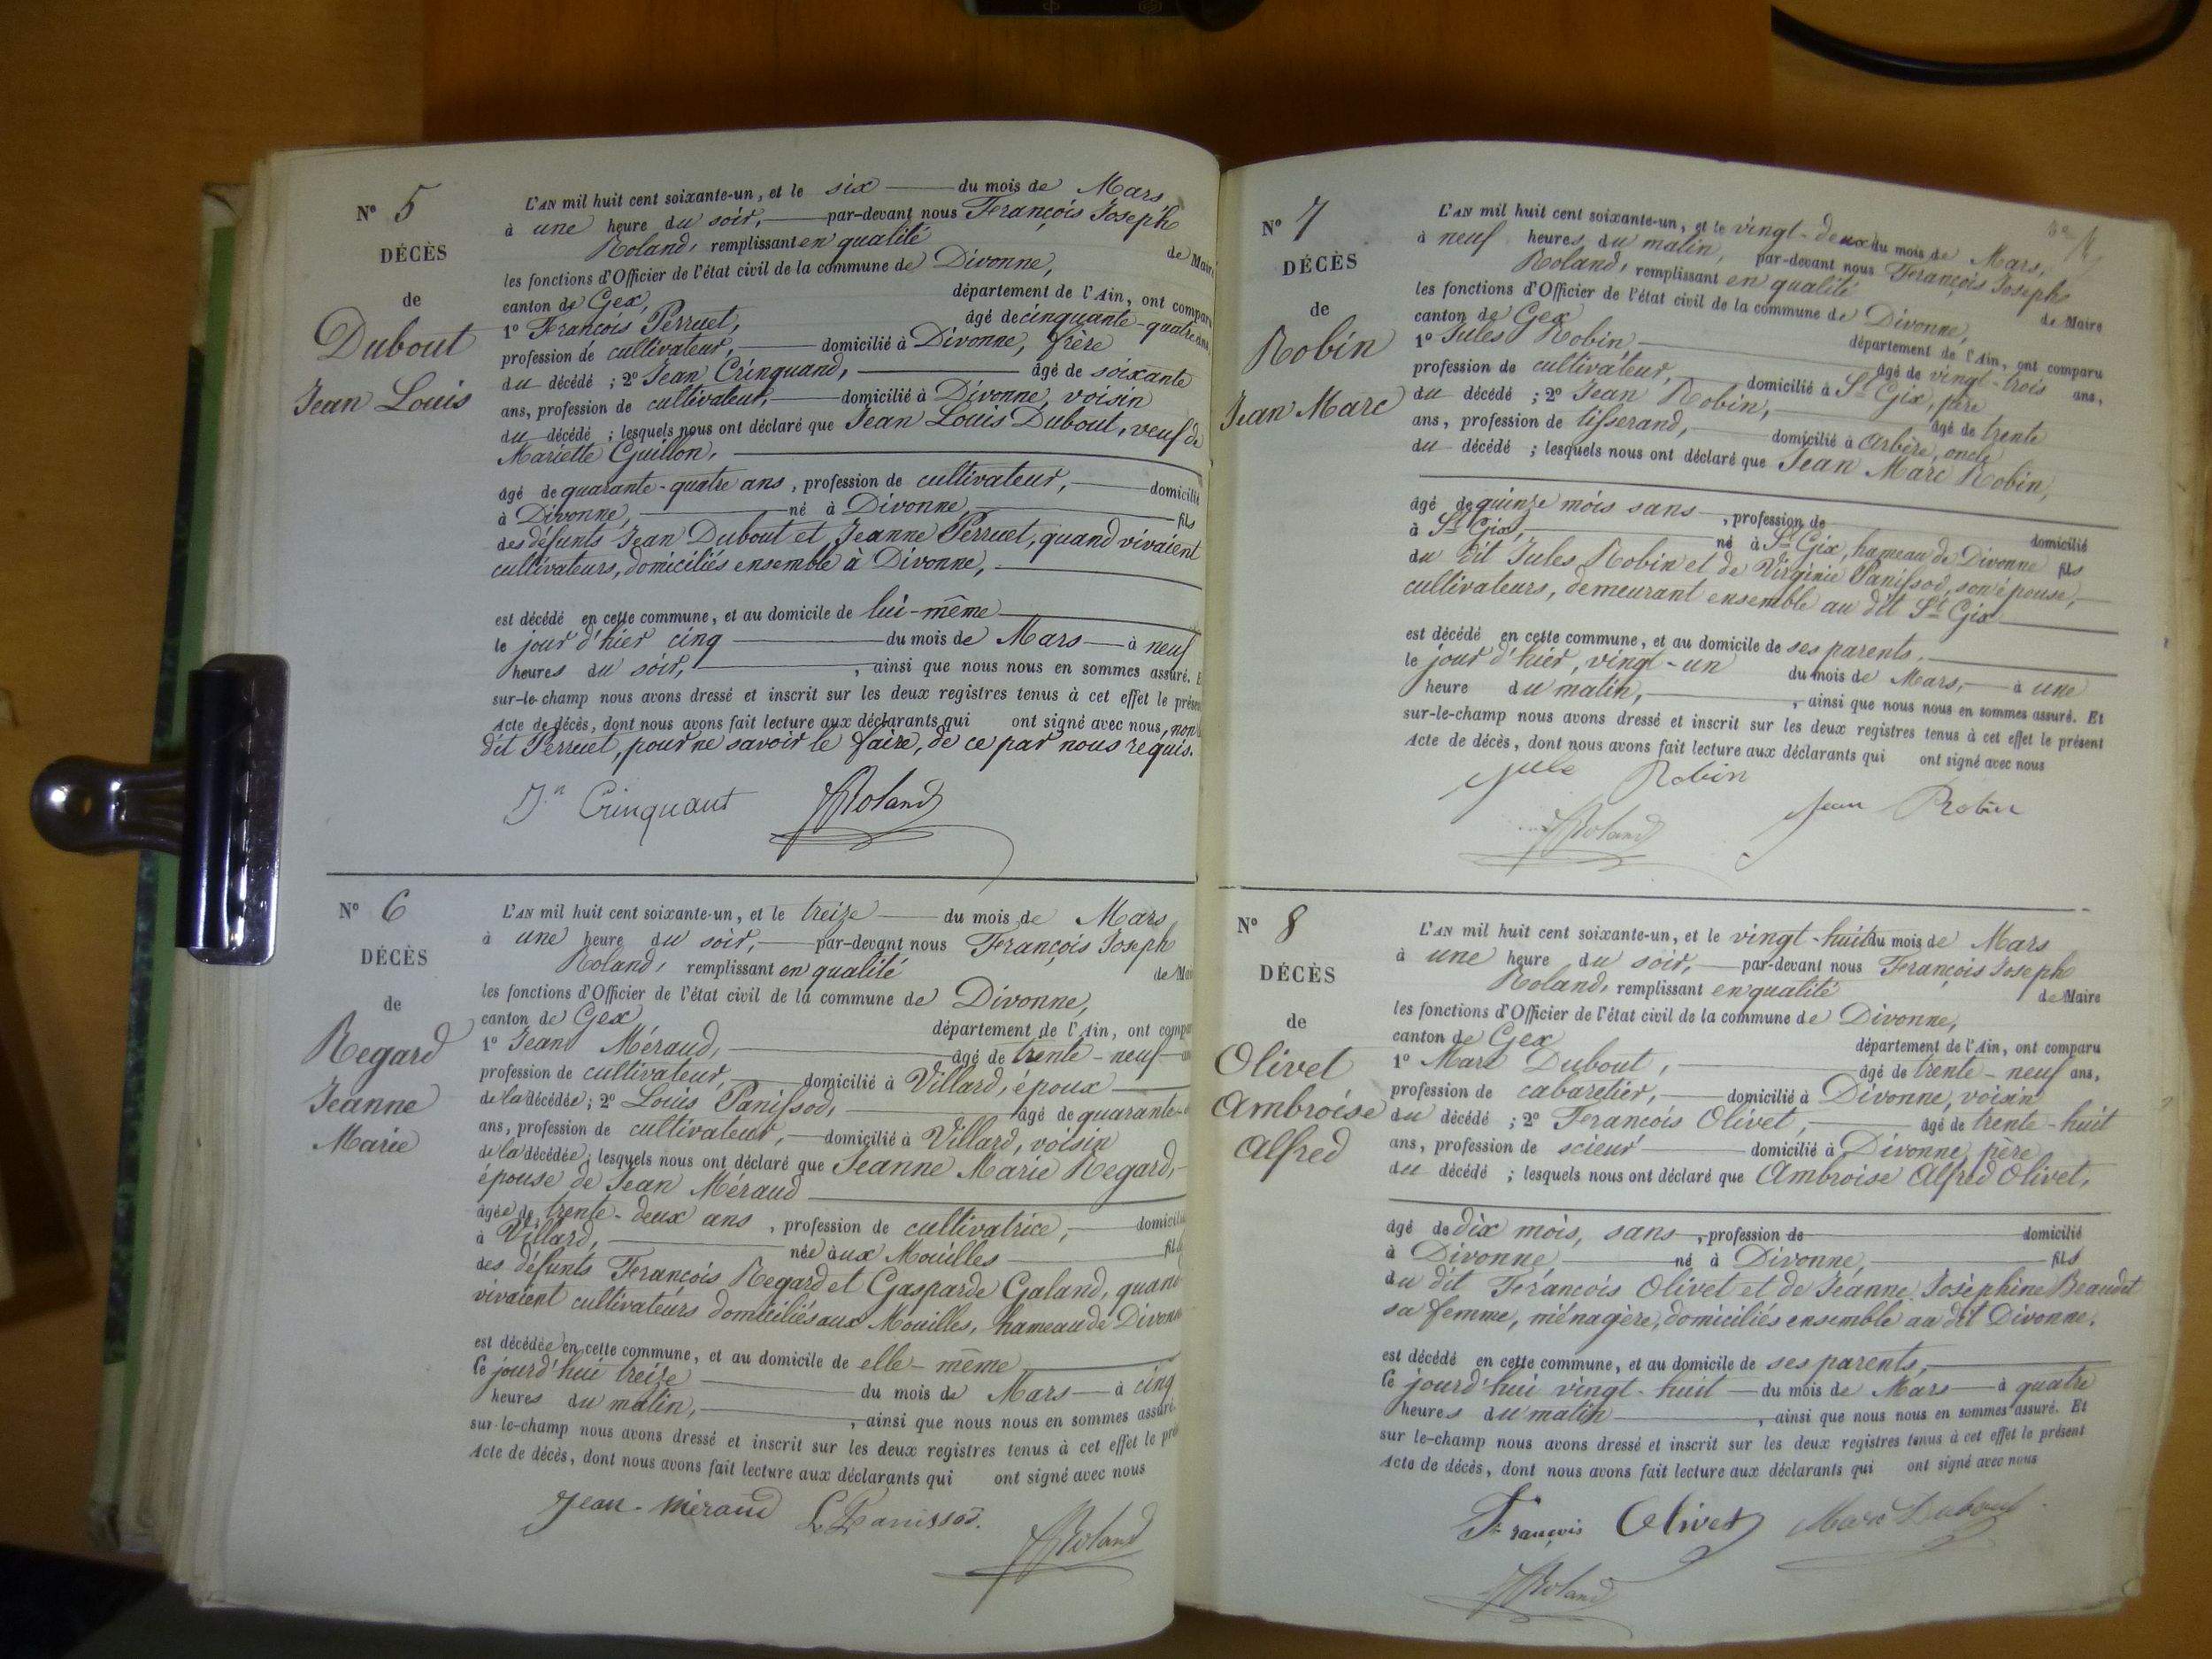 N° 5
DÉCÈS
de
Dubout
Jean Louis
L'AN mil huit cent soixante-un, et le six du mois de Mars,
à une heure du soir, par-devant nous François Joseph
Roland, remplissant en qualité de Maire
les fonctions d'Officier de l'état civil de la commune de Divonne,
canton de Gex, département de l'Ain, ont comparu
1° François Perruet, âgé de cinquante-quatre ans,
profession de cultivateur, domicilié à Divonne, frère
du décédé ; 2° Jean Crinquand, âgé de soixante
ans, profession de cultivateur, domicilié à Divonne, voisin
du décédé ; lesquels nous ont déclaré que Jean Louis Dubout, veuf de
Mariette Guillon,
âgé de quarante-quatre ans, profession de cultivateur, domicilié
à Divonne, né à Divonne, fils
des défunts Jean Dubout et Jeanne Perruet, quand vivaient
cultivateurs, domiciliés ensemble à Divonne,
est décédé en cette commune, et au domicile de lui-même
le jour d'hier cinq du mois de Mars à neuf
heures du soir, , ainsi que nous nous en sommes assuré. E
sur-le-champ nous avons dressé et inscrit sur les deux registres tenus à cet effet le présen
Acte de décès, dont nous avons fait lecture aux déclarants qui ont signé avec nous, non
dit Perruet, pour ne savoir le faire, de ce par nous requis.
Jn Crinquant Roland
N° 6
DÉCÈS
de
Regard
Jeanne
Marie
L'AN mil huit cent soixante-un, et le treize du mois de Mars,
à une heure du soir, par-devant nous François Joseph
Roland, remplissant en qualité de Mai
les fonctions d'Officier de l'état civil de la commune de Divonne,
canton de Gex département de l'Ain, ont compa
1° Jean Méraud, âgé de trente-neuf an
profession de cultivateur, domicilié à Villard, époux
de la décédée ; 2° Louis Panissod, âgé de quarante-
ans, profession de cultivateur, domicilié à Villard, voisin
de la décédée ; lesquels nous ont déclaré que Jeanne Marie Regard,
épouse de Jean Méraud
âgée de trente-deux ans, profession de cultivatrice, domicilié
à Villard, née aux Mouilles fille
des défunts François Regard et Gasparde Galand, quand
vivaient cultivateurs domiciliés aux Mouilles, hameau de Divonne
est décédée en cette commune, et au domicile de elle-même
Ce jourd'hui treize du mois de Mars à cinq
heures du matin, , ainsi que nous nous en sommes assuré.
sur-le-champ nous avons dressé et inscrit sur les deux registres tenus à cet effet le pré
Acte de décès, dont nous avons fait lecture aux déclarants qui ont signé avec nous
Jean-Meraud L. Panissod. Roland
N° 7
DÉCÈS
de
Robin
Jean Marc
L'AN mil huit cent soixante-un, et le vingt-deux du mois de Mars,
à neuf heures du matin, par-devant nous François Joseph
Roland, remplissant en qualité de Maire
les fonctions d'Officier de l'état civil de la commune de Divonne,
canton de Gex département de l'Ain, ont comparu
1° Jules Robin âgé de vingt-trois ans,
profession de cultivateur, domicilié à St Gix, père
du décédé ; 2° Jean Robin, âgé de trente
ans, profession de tisserand, domicilié à Arbère, oncle
du décédé ; lesquels nous ont déclaré que Jean Marc Robin,
âgé de quinze mois sans, profession de domicilié
à St Gix, né à St Gix, hameau de Divonne fils
du dit Jules Robin et de Virginie Panissod, son épouse,
cultivateurs, demeurant ensemble au dit St Gix
est décédé en cette commune, et au domicile de ses parents,
le jour d'hier, vingt-un du mois de Mars, à une
heure du matin, , ainsi que nous nous en sommes assuré. Et
sur-le-champ nous avons dressé et inscrit sur les deux registres tenus à cet effet le présent
Acte de décès, dont nous avons fait lecture aux déclarants qui ont signé avec nous
Jule Robin
Roland Jean Robin
N° 8
DÉCÈS
de
Olivet
Ambroise
Alfred
L'AN mil huit cent soixante-un, et le vingt-huit du mois de Mars
à une heure du soir, par-devant nous François Joseph
Roland, remplissant en qualité de Maire
les fonctions d'Officier de l'état civil de la commune de Divonne,
canton de Gex département de l'Ain, ont comparu
1° Marc Dubout, âgé de trente-neuf ans,
profession de cabaretier, domicilié à Divonne, voisin
du décédé ; 2° François Olivet, âgé de trente-huit
ans, profession de scieur domicilié à Divonne, père
du décédé ; lesquels nous ont déclaré que Ambroise Alfred Olivet,
âgé de dix mois, sans, profession de domicilié
à Divonne, né à Divonne, fils
du dit François Olivet et de Jeanne Josephine Beaudet
sa femme, ménagère, domiciliés ensemble au dit Divonne.
est décédé en cette commune, et au domicile de ses parents,
Ce jourd'hui vingt-huit du mois de Mars à quatre
heures du matin , ainsi que nous nous en sommes assuré. Et
sur le-champ nous avons dressé et inscrit sur les deux registres tenus à cet effet le présent
Acte de décès, dont nous avons fait lecture aux déclarants qui ont signé avec nous
François Olivet Marc Dubout
Roland